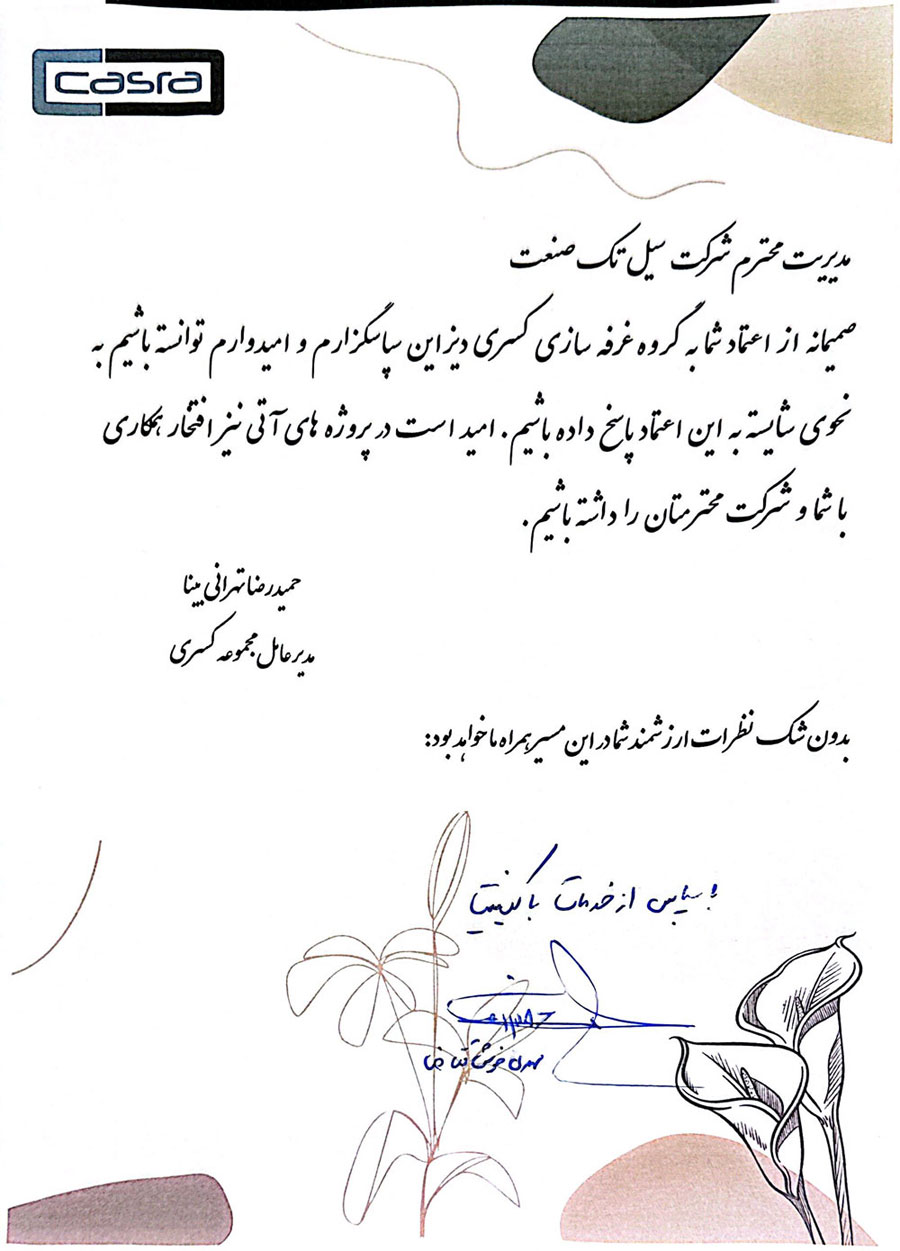 casra
مدیریت محترم شرکت سیل تک صنعت
صمیمانه از اعتماد شما به گروه غرفه سازی کسری دیزاین سپاسگزارم و امیدوارم توانسته باشیم به
نحوی شایسته به این اعتماد پاسخ داده باشیم. امید است در پروژه های آتی نیز افتخار همکاری
با شما و شرکت محترمتان را داشته باشیم.
حمیدرضا تهرانی بینا
مدیرعامل مجموعه کسری
بدون شک نظرات ارزشمند شما در این مسیر همراه ما خواهد بود:
با سپاس از خدمات با کیفیت
مهدی